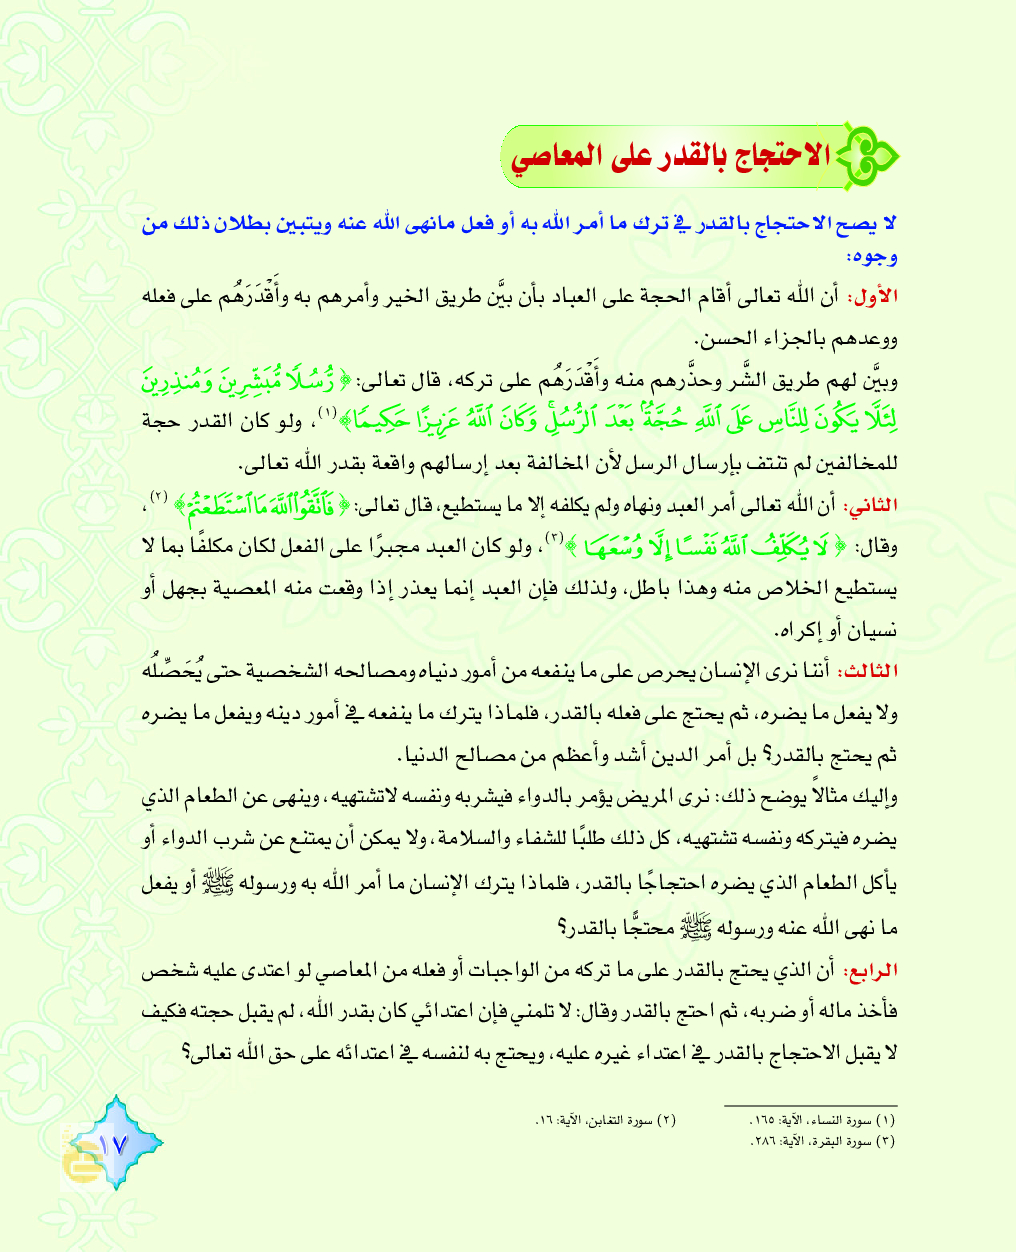 الاحتجاج بالقدر على المعاصي
لا يصح الاحتجاج بالقدر في ترك ما أمر الله به أو فعل مانهى الله عنه ويتبين بطلان ذلك من
وجوه:
الأول: أن الله تعالى أقام الحجة على العباد بأن بيَّن طريق الخير وأمرهم به وأَقْدَرَهُم على فعله
ووعدهم بالجزاء الحسن.
وبيَّن لهم طريق الشَّر وحذَّرهم منه وأَقْدَرَهُم على تركه، قال تعالى: ﴿ رُّسُلًا مُّبَشِّرِينَ وَمُنذِرِينَ
لِئَلَّا يَكُونَ لِلنَّاسِ عَلَى ٱللَّهِ حُجَّةٌۢ بَعْدَ ٱلرُّسُلِۚ وَكَانَ ٱللَّهُ عَزِيزًا حَكِيمًا﴾(١)، ولو كان القدر حجة
للمخالفين لم تنتف بإرسال الرسل لأن المخالفة بعد إرسالهم واقعة بقدر الله تعالى.
الثاني: أن الله تعالى أمر العبد ونهاه ولم يكلفه إلا ما يستطيع، قال تعالى: ﴿ فَٱتَّقُوا۟ ٱللَّهَ مَا ٱسْتَطَعْتُمْ ﴾ (٢)،
وقال: ﴿ لَا يُكَلِّفُ ٱللَّهُ نَفْسًا إِلَّا وُسْعَهَا ﴾(٣)، ولو كان العبد مجبرًا على الفعل لكان مكلفًا بما لا
يستطيع الخلاص منه وهذا باطل، ولذلك فإن العبد إنما يعذر إذا وقعت منه المعصية بجهل أو
نسيان أو إكراه.
الثالث: أننا نرى الإنسان يحرص على ما ينفعه من أمور دنياه ومصالحه الشخصية حتى يُحَصِّلُه
ولا يفعل ما يضره، ثم يحتج على فعله بالقدر، فلماذا يترك ما ينفعه في أمور دينه ويفعل ما يضره
ثم يحتج بالقدر؟ بل أمر الدين أشد وأعظم من مصالح الدنيا.
وإليك مثالاً يوضح ذلك: نرى المريض يؤمر بالدواء فيشربه ونفسه لاتشتهيه، وينهى عن الطعام الذي
يضره فيتركه ونفسه تشتهيه، كل ذلك طلبًا للشفاء والسلامة، ولا يمكن أن يمتنع عن شرب الدواء أو
يأكل الطعام الذي يضره احتجاجًا بالقدر، فلماذا يترك الإنسان ما أمر الله به ورسوله ﷺ أو يفعل
ما نهى الله عنه ورسوله ﷺ محتجًّا بالقدر؟
الرابع: أن الذي يحتج بالقدر على ما تركه من الواجبات أو فعله من المعاصي لو اعتدى عليه شخص
فأخذ ماله أو ضربه، ثم احتج بالقدر وقال: لا تلمني فإن اعتدائي كان بقدر الله، لم يقبل حجته فكيف
لا يقبل الاحتجاج بالقدر في اعتداء غيره عليه، ويحتج به لنفسه في اعتدائه على حق الله تعالى؟
(١) سورة النساء، الآية: ١٦٥.
(٢) سورة التغابن، الآية: ١٦.
(٣) سورة البقرة، الآية: ٢٨٦.
١٧